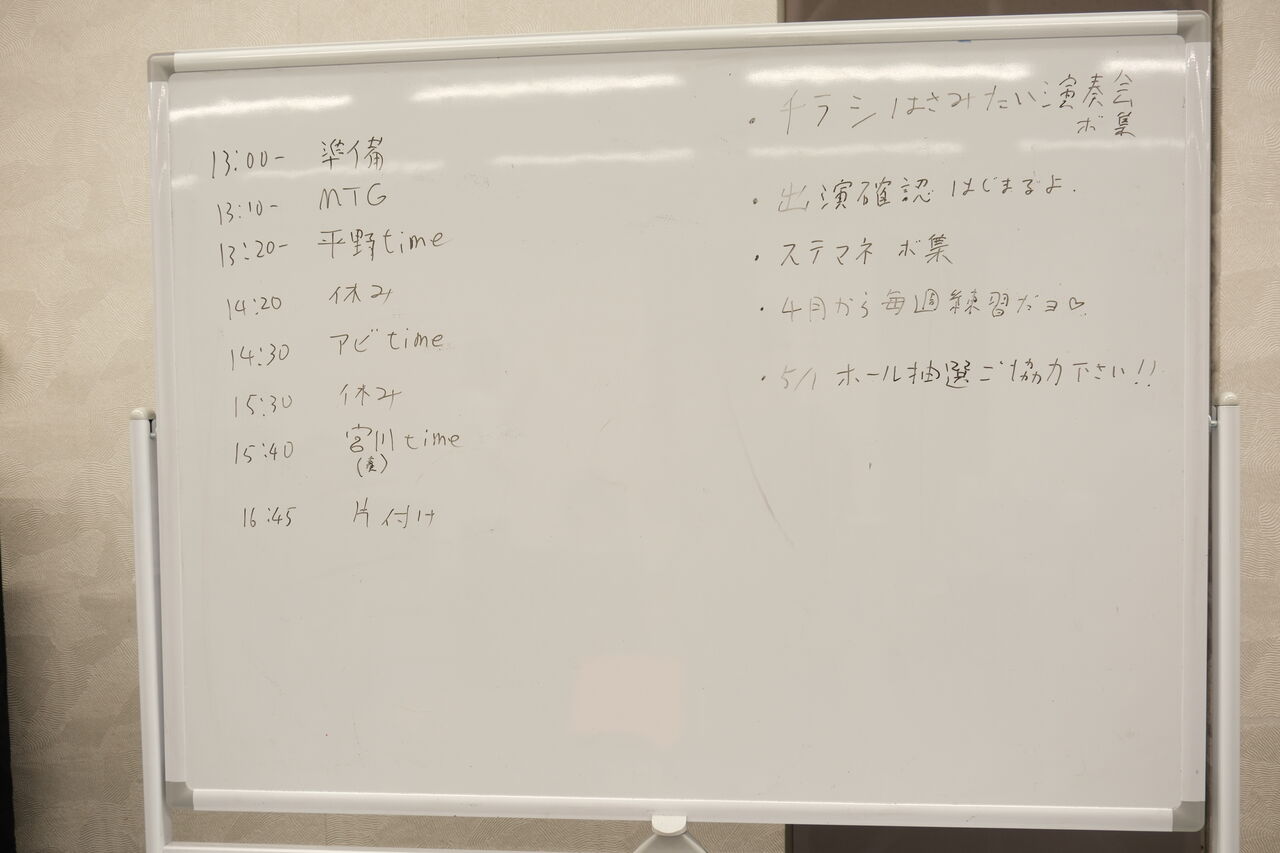 13:00- 準備
13:10- MTG
13:20- 平野time
14:20 休み
14:30 アビtime
15:30 休み
15:40 宮川time
16:45 片付け
・チラシはさみたい演奏会
ボ集
・出演確認はじまるよ.
・ステマネ ボ集
・4月から毎週練習だヨ♡
・5/1 ホール抽選ご協力下さい!!